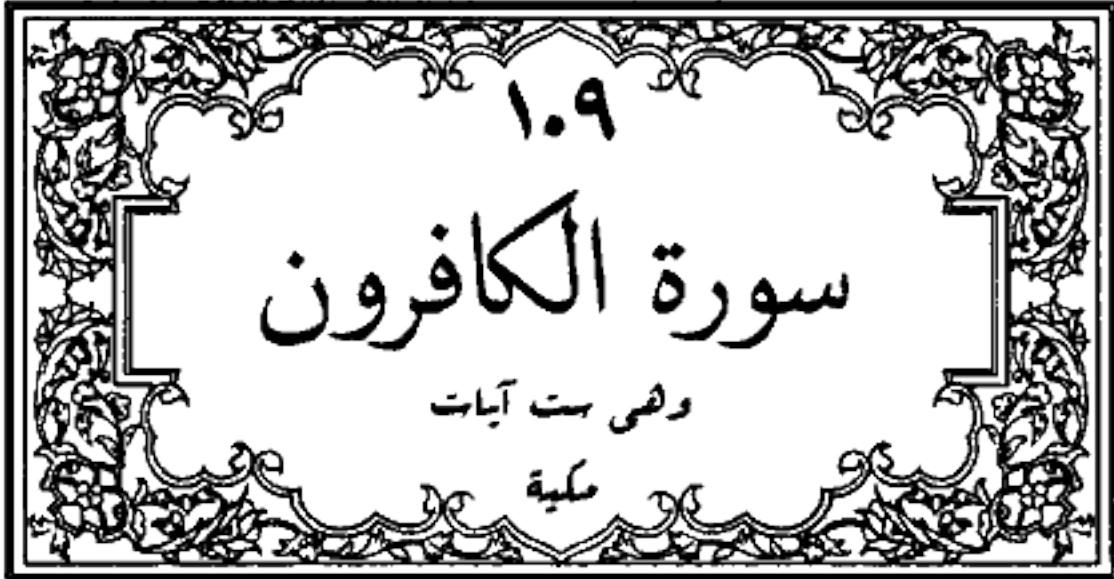 ١٠٩
سورة الكافرون
وهى ست آيات
مكية